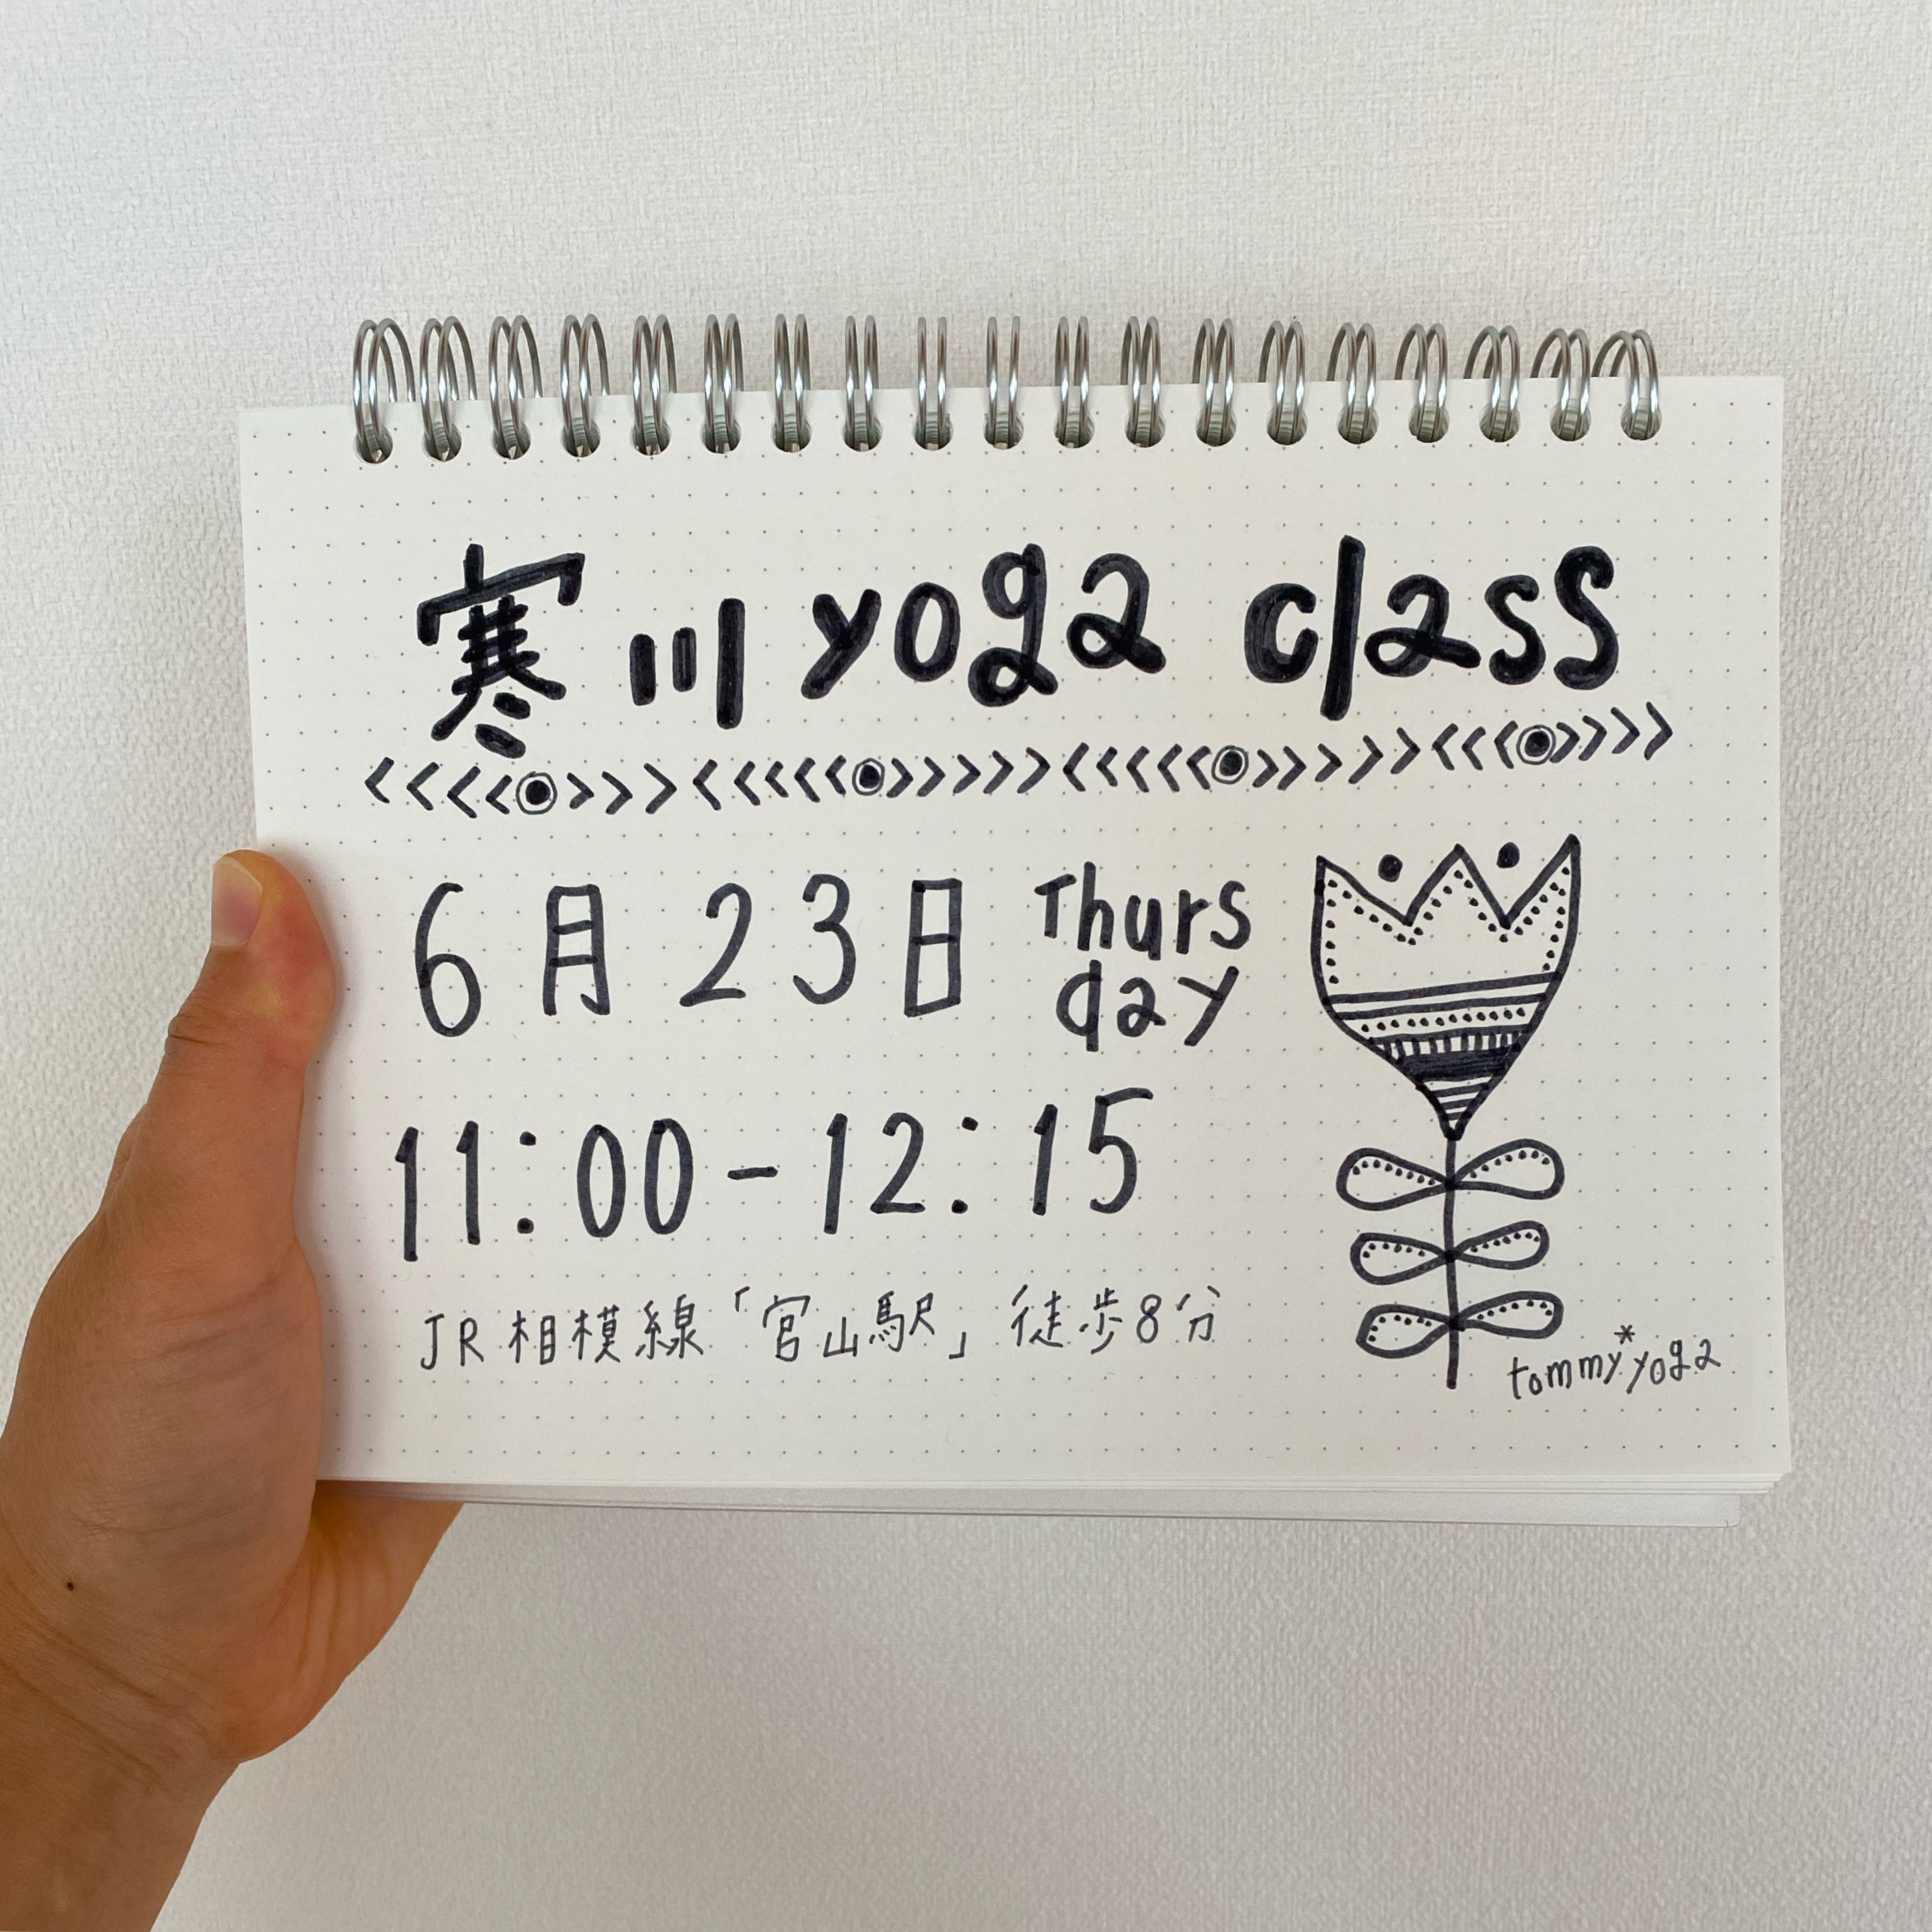 寒川 yoga class
6月23日 Thurs
day
11:00-12:15
JR相模線「宮山駅」徒歩8分
tommy*yoga